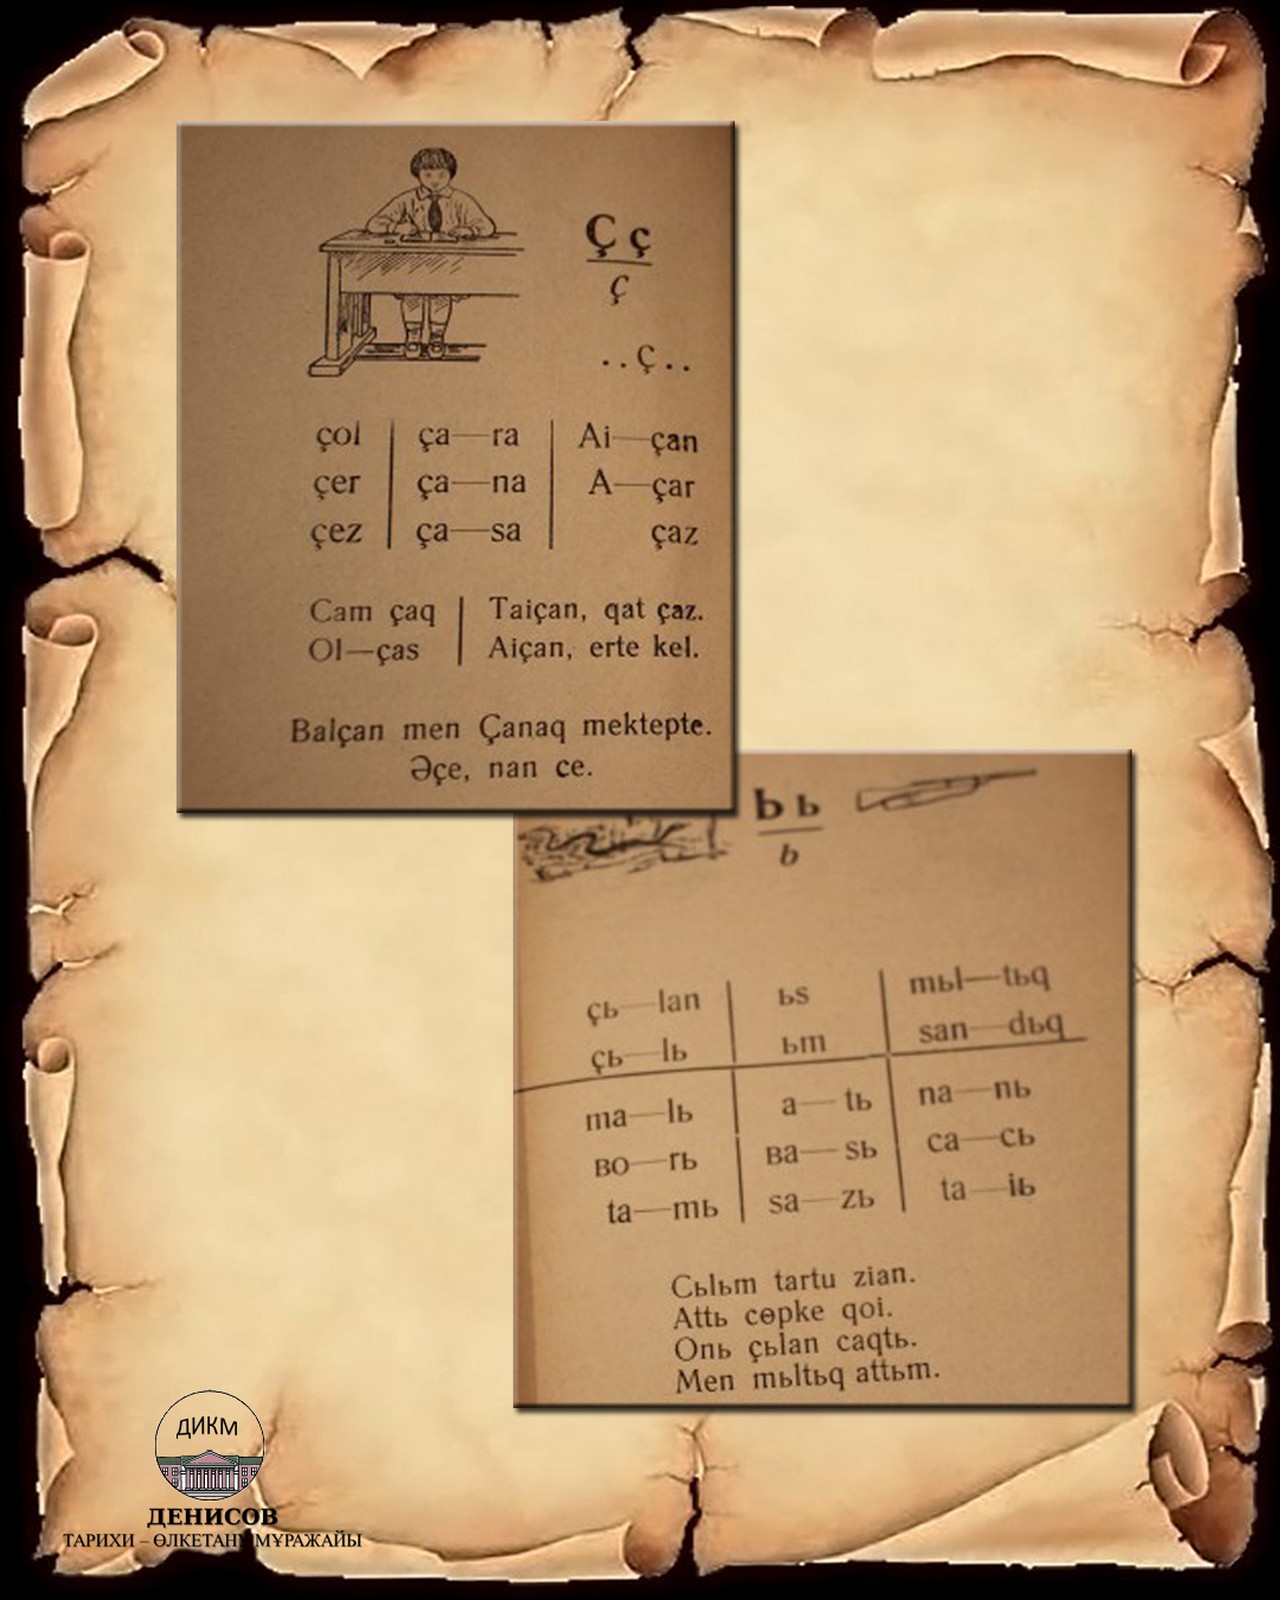 Ç ç
ç
..ç..
çol | ça—ra | Ai—çan
çer | ça—na | A—çar
çez | ça—sa | çaz
Cam çaq | Taiçan, qat çaz.
Ol—ças | Aiçan, erte kel.
Balçan men Çanaq mektepte.
Əçe, nan ce.
Ь ь
ь
çь—lan | ьs | mьl—tьq
çь—lь | ьm | san—dьq
ma—lь | a—tь | na—nь
ʙo—rь | ʙa—sь | ca—cь
ta—mь | sa—zь | ta—iь
Cьlьm tartu zian.
Attь cɵpke qoi.
Onь çьlan caqtь.
Men mьltьq attьm.
ДИКМ
ДЕНИСОВ
ТАРИХИ – ӨЛКЕТАНУ МҰРАЖАЙЫ